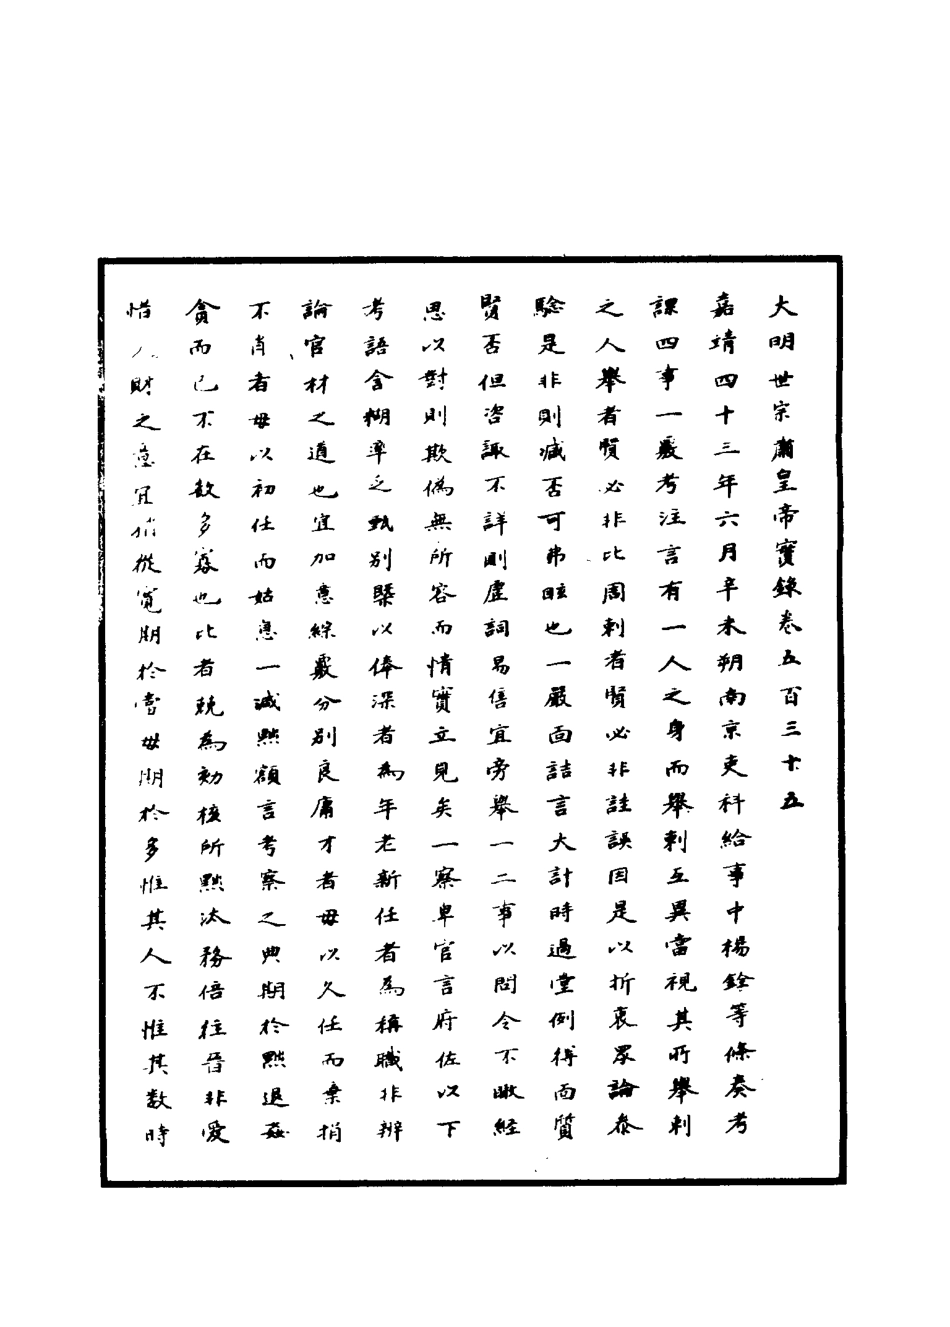 大明世宗肅皇帝實錄卷五百三十五
嘉靖四十三年六月辛未朔南京吏科給事中楊銓等條奏考
課四事一覈考注言有一人之身而舉刺互異當視其所舉刺
之人舉者賢必非比周刺者賢必非詿誤因是以折衷眾論叅
驗是非則臧否可弗眩也一嚴面詰言大計時過堂例得而質
賢否但咨諏不詳則虛詞易售宜旁舉一二事以問令不暇經
思以對則欺偽無所容而情實立見矣一察卑官言府佐以下
考語含糊率乏甄別槩以俸深者為年老新任者為稱職非辨
論官材之道也宜加意綜覈分別良庸才者毋以久任而棄捐
不肖者毋以初任而姑息一減黜額言考察之典期於黜退姦
貪而已不在數多寡也比者競為劾核所黜汰務倍往昔非愛
惜人財之意宜稍從寬期於當毋期於多惟其人不惟其数時